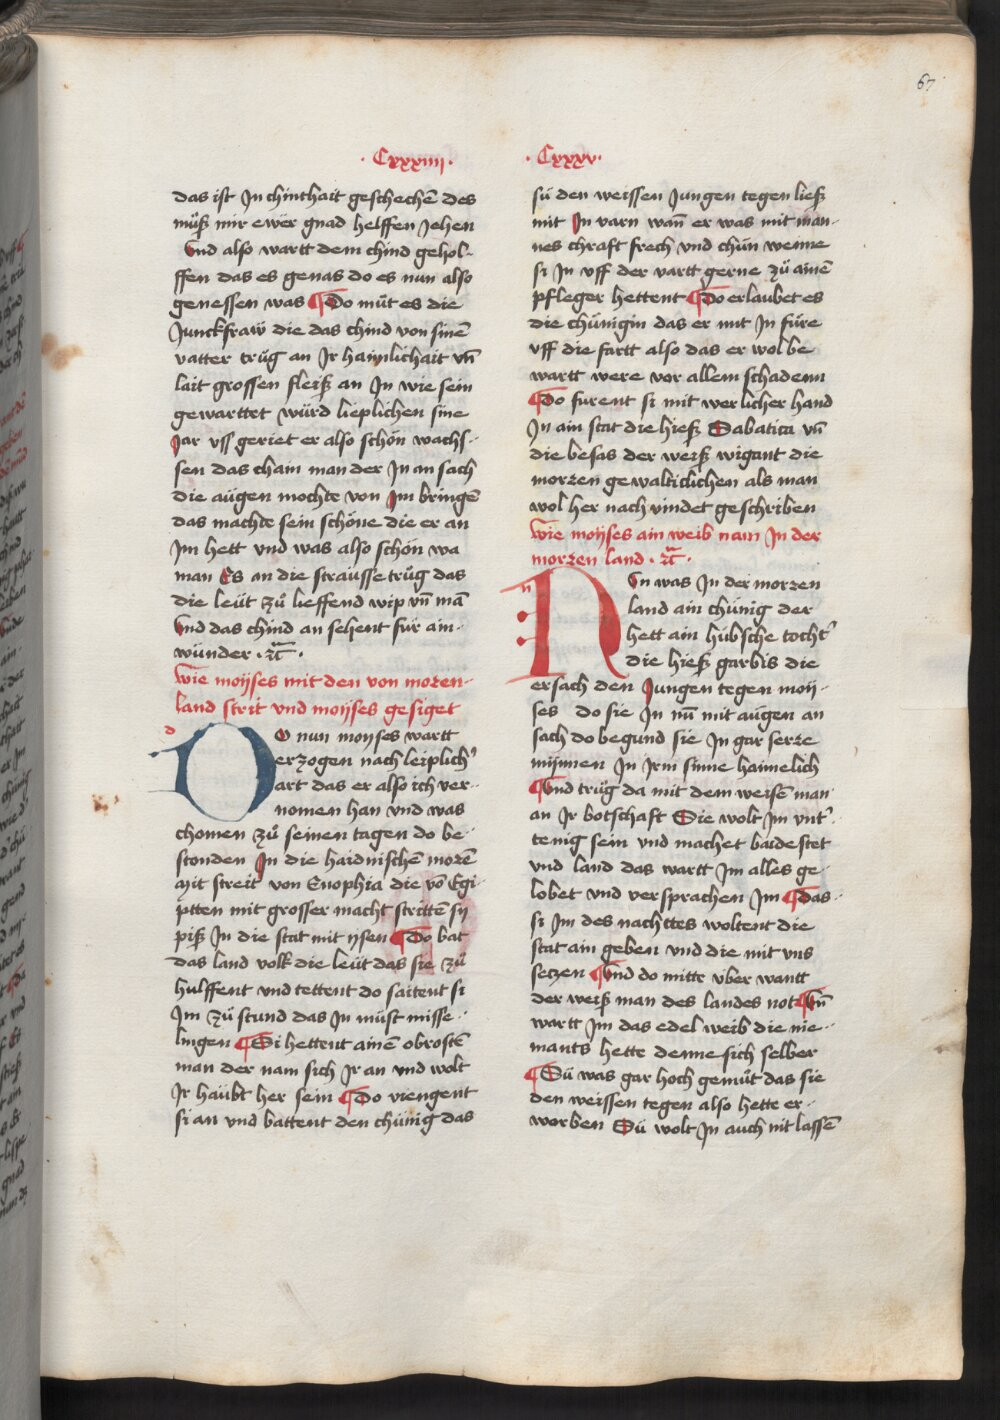 67
· Cxxxiiij ·
das ist Jn chinthait geschechē des
müß mir ewer gnad helffen Jehen
Vnd also wartt dem chind gehol-
ffen das es genas do es nun also
genessen was ¶ Do müt es die
Junckfraw die das chind von sinē
vatter trüg an Jr haimlichait vn̄
lait grossen fleiß an Jn wie sein
gewarttet würd lieplichen sine
Jar vss geriet er also schön wachs-
sen das chain man der Jn an sach
die augen mochte von Jm bringē
das machte sein schöne die er an
Jm hett vnd was also schön wa
man Es an die strausse trüg das
die leüt zü lieffend wip vn̄ mā
Vnd das chind an sehent für ain
wünder · ꝛc̄ ·
wie moyses mit den von moren-
land strit vnd moyses gesiget
d
Do nun moyses wartt
erzogen nach leiplichʾ
art das er also ich ver-
nomen han vnd was
chomen zü seinen tagen do be-
stonden Jn die haidnischē morē
Mit streit von Enophia die vō Egi-
ptten mit grosser macht strittē sy
piß Jn die stat mit ysen ¶ Do bat
das land volk die leüt das sie zü
hulffent vnd tettent do saitent si
Jm zü stund das Jn müst misse-
lingen ¶ Si hettent ainē obrostē
man der nam sich Jr an vnd wolt
Jr haübt her sein ¶ Do viengent
si an vnd battent den chünig das
· Cxxxv ·
sü den weissen Jungen tegen ließ
mit Jn varn wan̄ er was mit man-
nes chraft frech vnd chün weinne
si Jn vff der vartt gerne zü ainē
pfleger hettent ¶ Do erlaubet es
die chünigin das er mit Jn füre
vff die fartt also das er wol be
wartt were vor allem schadenn
¶ Do furent si mit werlicher hand
Jn ain stat die hieß Sabatica vn̄
die besas der weiß wigant die
morzen gewalticlichen als man
wol her nach vindet geschriben
wie moyses ain weib nam Jn der
morzen land · ꝛc̄ ·
n
NVn was Jn der morzen
land ain chünig der
hett ain hübsche tochtʾ
die hieß garbis die
ersach den Jungen tegen moy-
ses do sie Jn nū mit augen an
sach do begund sie Jn gar serre
mynnen Jn Jrm sinne haimelich
¶ Vnd trüg da mit dem weisē man
an Jr botschaft Sie wolt Jm vntʾ
tenig sein vnd machet baide stet
vnd land das wartt Jm alles ge-
lobet vnd versprachen Jm ¶ Das
si Jm des nachttes woltent die
stat ain geben vnd die mit vns
setzen ¶ Vnd do mitte vber wantt
der weiß man des landes not ¶ Vn̄
wartt Jm das edel weib die nie-
mants hette denne sich selber
¶ Sü was gar hoch gemüt das sie
den weissen tegen also hette er-
worben Sü wolt Jn auch nit lassē